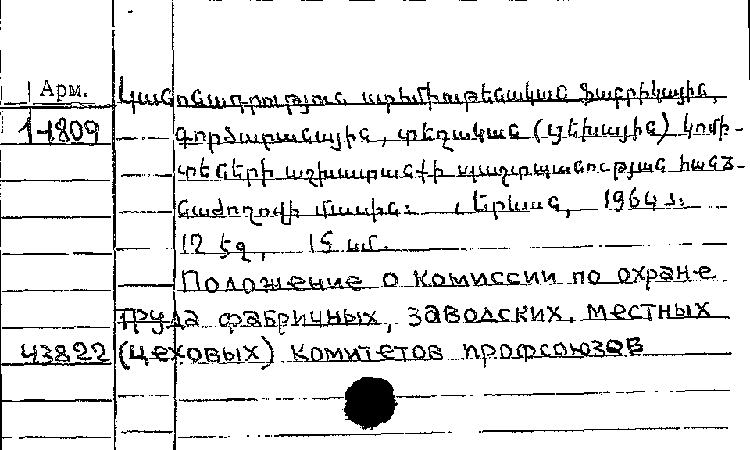 Арм. Կանոնադրություն արհմիութենական ֆաբրիկային,
1-1809 գործարանային, տեղական (ցեխային) կոմի-
տեների աշխատանքի պաշտպանության հանձ-
նաժողովի մասին: Երևան, 1964 թ.
12 էջ, 15 սմ.
Положение о комиссии по охране
труда фабричных, заводских, местных
43822 (цеховых) комитетов профсоюзов